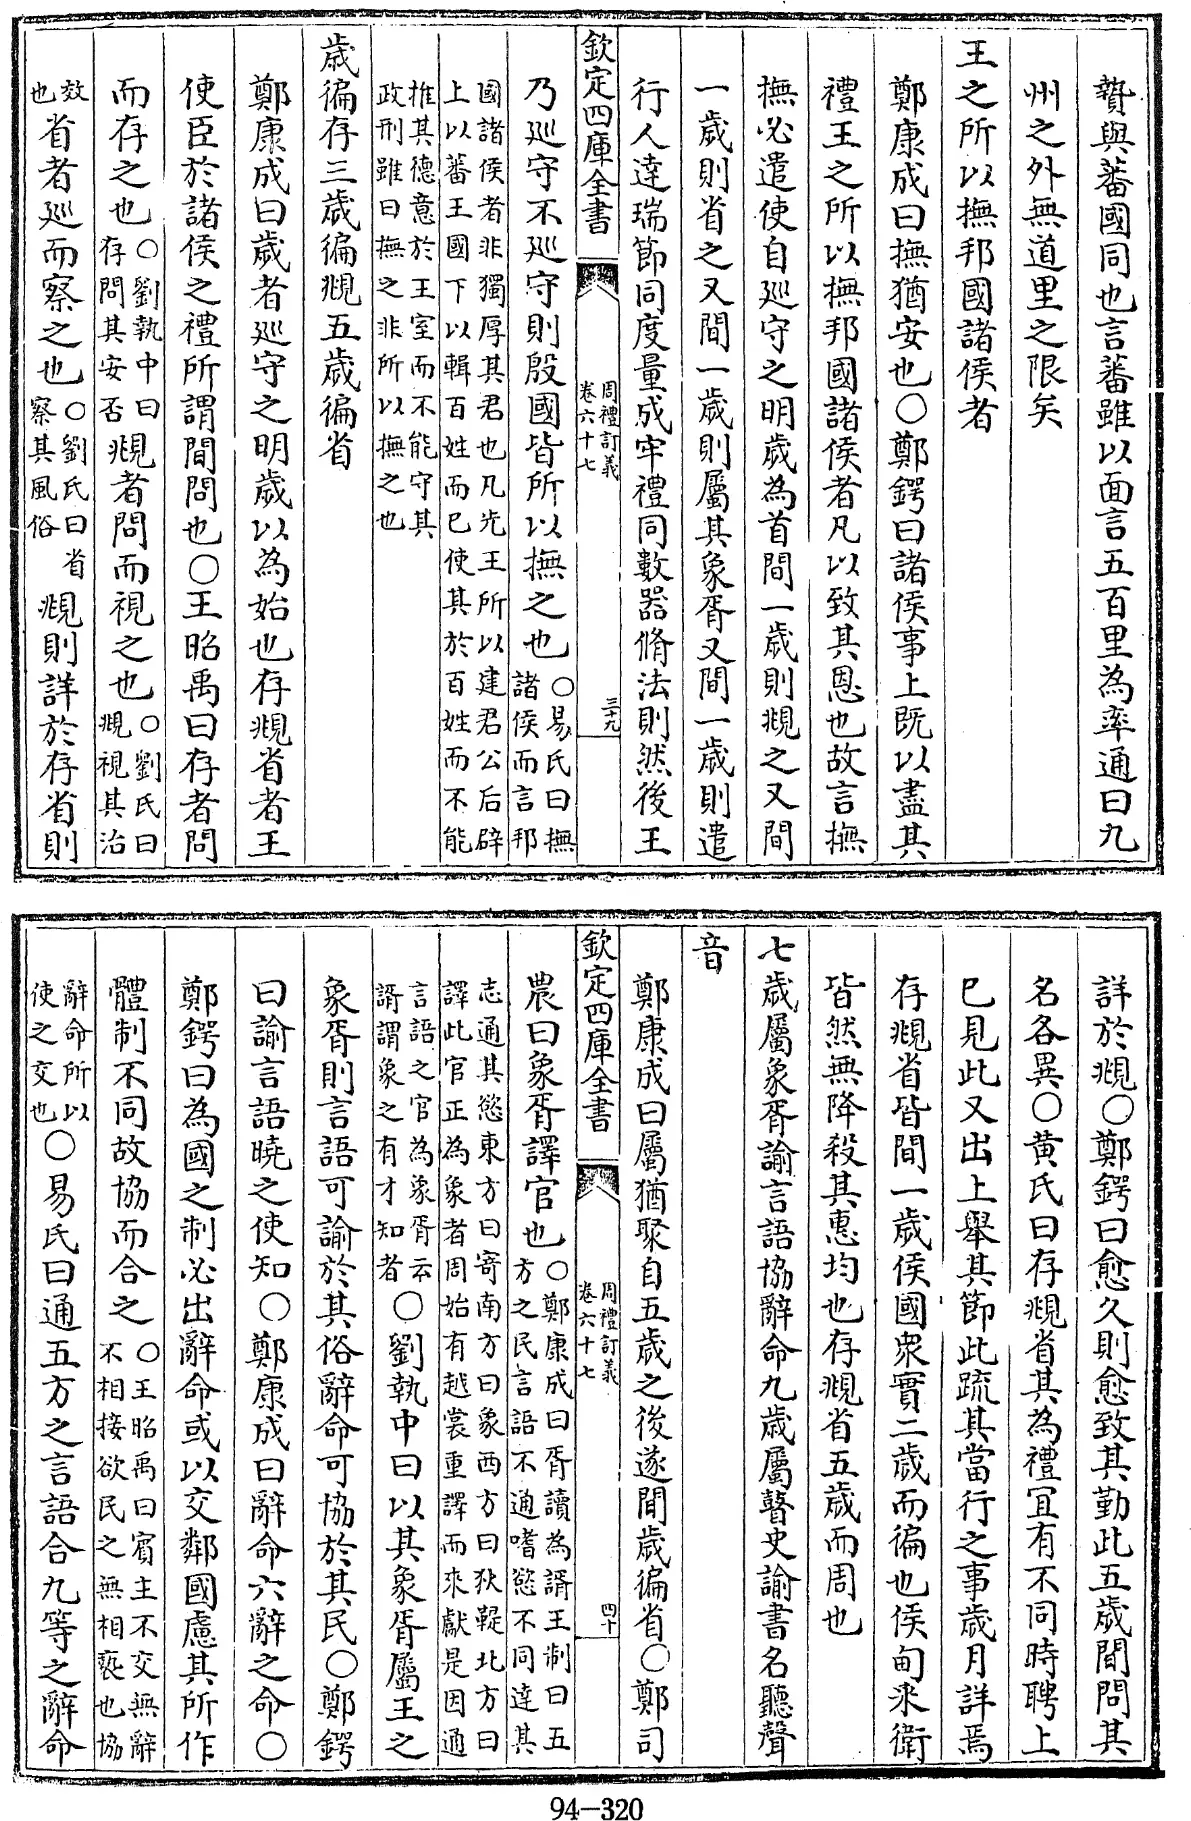 贄與蕃國同也言蕃雖以面言五百里為率通曰九
州之外無道里之限矣
王之所以撫邦國諸侯者
鄭康成曰撫猶安也○鄭鍔曰諸侯事上既以盡其
禮王之所以撫邦國諸侯者凡以致其恩也故言撫
撫必遣使自巡守之明歲為首間一歲則覜之又間
一歲則省之又間一歲則屬其象胥又間一歲則遣
行人達瑞節同度量成牢禮同數器脩法則然後王
欽定四庫全書
周禮訂義
卷六十七
三十九
乃巡守不巡守則殷國皆所以撫之也○易氏曰撫諸侯而言邦
國諸侯者非獨厚其君也凡先王所以建君公后辟
上以蕃王國下以輯百姓而已使其於百姓而不能
推其德意於王室而不能守其
政刑雖曰撫之非所以撫之也
歲徧存三歲徧覜五歲徧省
鄭康成曰歲者巡守之明歲以為始也存覜省者王
使臣於諸侯之禮所謂間問也○王昭禹曰存者問
而存之也○劉執中曰存問其安否覜者問而視之也○劉氏曰覜視其治
效也省者巡而察之也○劉氏曰省察其風俗覜則詳於存省則
詳於覜○鄭鍔曰愈久則愈致其勤此五歲間問其
名各異○黄氏曰存覜省其為禮宜有不同時聘上
已見此又出上舉其節此疏其當行之事歲月詳焉
存覜省皆間一歲侯國衆實二歲而徧也侯甸采衛
皆然無降殺其惠均也存覜省五歲而周也
七歲屬象胥諭言語協辭命九歲屬瞽史諭書名聽聲
音
鄭康成曰屬猶聚自五歲之後遂間歲徧省○鄭司
欽定四庫全書
周禮訂義
卷六十七
四十
農曰象胥譯官也○鄭康成曰胥讀為諝王制曰五方之民言語不通嗜慾不同達其
志通其慾東方曰寄南方曰象西方曰狄鞮北方曰
譯此官正為象者周始有越裳重譯而來獻是因通
言語之官為象胥云
諝謂象之有才知者○劉執中曰以其象胥屬王之
象胥則言語可諭於其俗辭命可協於其民○鄭鍔
曰諭言語曉之使知○鄭康成曰辭命六辭之命○
鄭鍔曰為國之制必出辭命或以交鄰國慮其所作
體制不同故協而合之○王昭禹曰賓主不交無辭不相接欲民之無相褻也協
辭命所以使之交也○易氏曰通五方之言語合九等之辭命
94-320